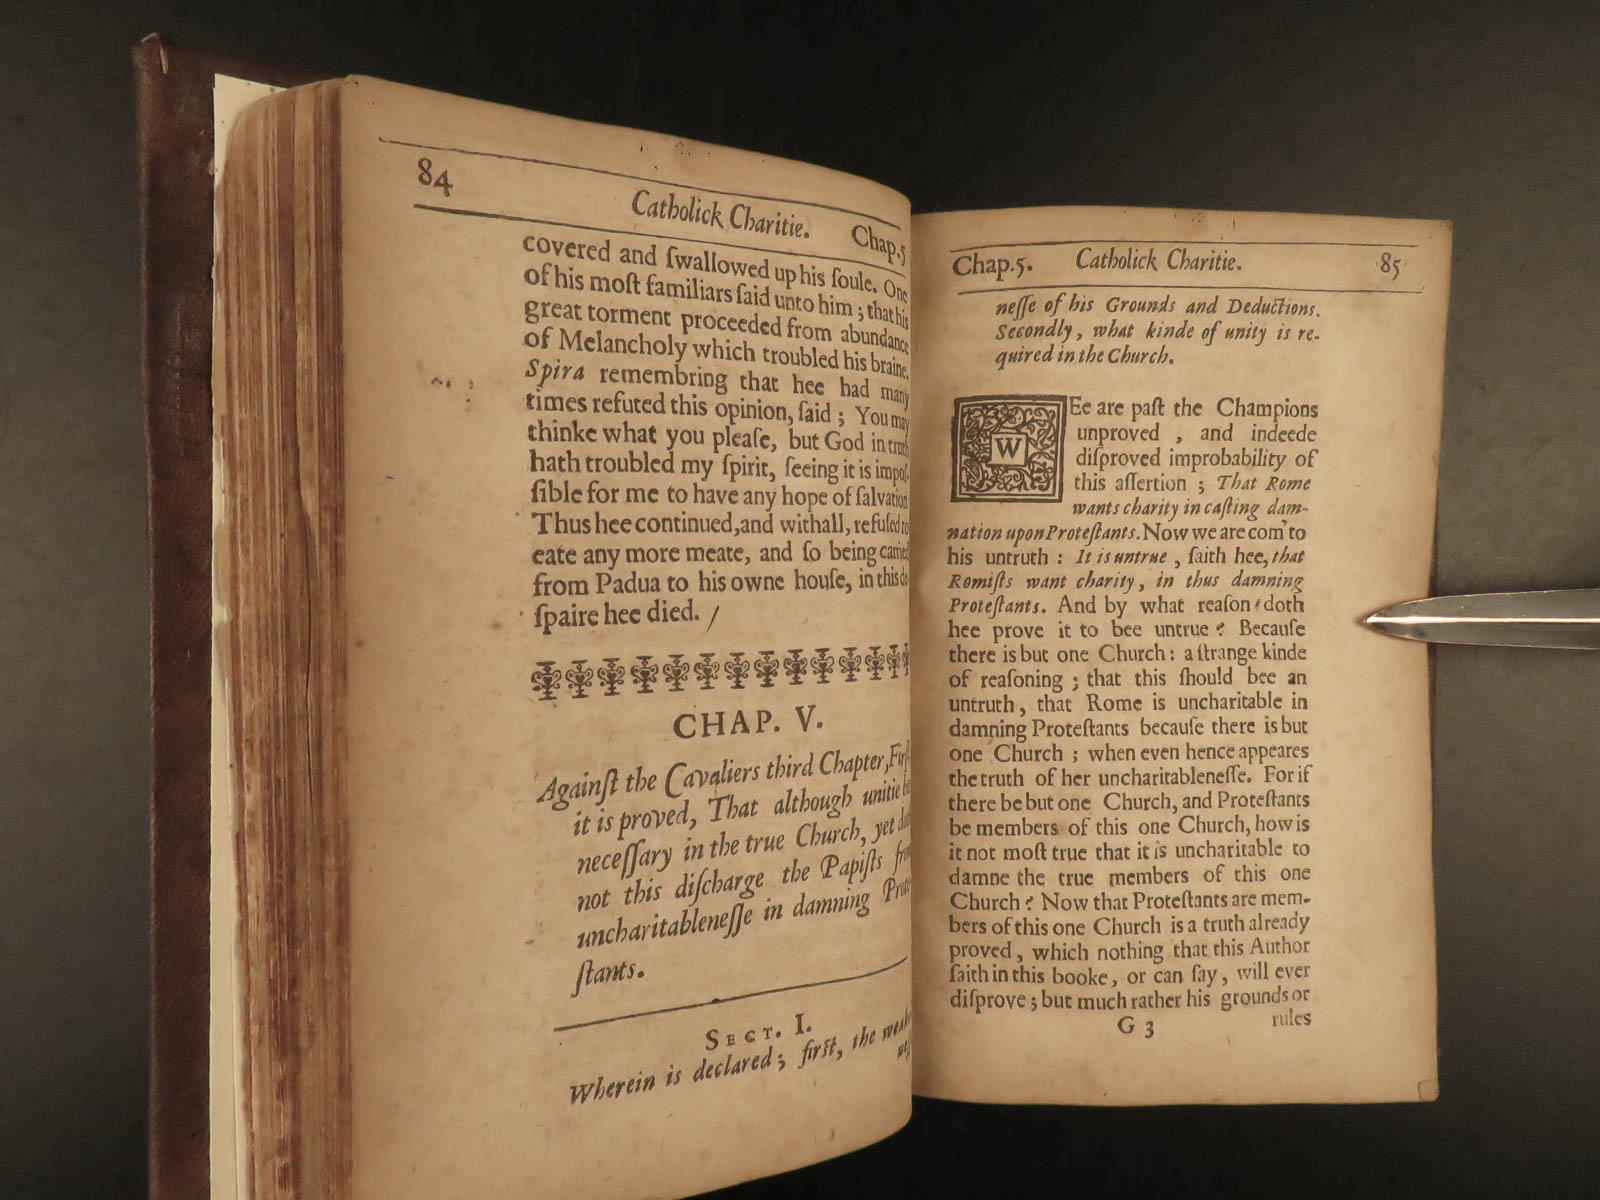 84
Catholick Charitie. Chap.5
covered and ſwallowed up his ſoule. One
of his moſt familiars ſaid unto him ; that his
great torment proceeded from abundance
of Melancholy which troubled his braine.
Spira remembring that hee had many
times refuted this opinion, ſaid ; You may
thinke what you pleaſe, but God in truth
hath troubled my ſpirit, ſeeing it is impoſ-
ſible for me to have any hope of ſalvation
Thus hee continued, and withall, refuſed to
eate any more meate, and ſo being carried
from Padua to his owne houſe, in this de
ſpaire hee died. /
CHAP. V.
Againſt the Cavaliers third Chapter, Firſt
it is proved, That although unitie be
neceſſary in the true Church, yet doth
not this diſcharge the Papiſts from
uncharitableneſſe in damning Prote-
ſtants.
SECT. I.
Wherein is declared ; firſt, the weak
neſſ
Chap.5. Catholick Charitie. 85
neſſe of his Grounds and Deductions.
Secondly, what kinde of unity is re-
quired in the Church.
WEe are paſt the Champions
unproved , and indeede
diſproved improbability of
this aſſertion ; That Rome
wants charity in caſting dam-
nation upon Proteſtants. Now we are com' to
his untruth : It is untrue , ſaith hee, that
Romiſts want charity, in thus damning
Proteſtants. And by what reaſon doth
hee prove it to bee untrue ? Becauſe
there is but one Church : a ſtrange kinde
of reaſoning ; that this ſhould bee an
untruth, that Rome is uncharitable in
damning Proteſtants becauſe there is but
one Church ; when even hence appeares
the truth of her uncharitableneſſe. For if
there be but one Church, and Proteſtants
be members of this one Church, how is
it not moſt true that it is uncharitable to
damne the true members of this one
Church ? Now that Proteſtants are mem-
bers of this one Church is a truth already
proved, which nothing that this Author
ſaith in this booke, or can ſay, will ever
diſprove ; but much rather his grounds or
G 3 rules